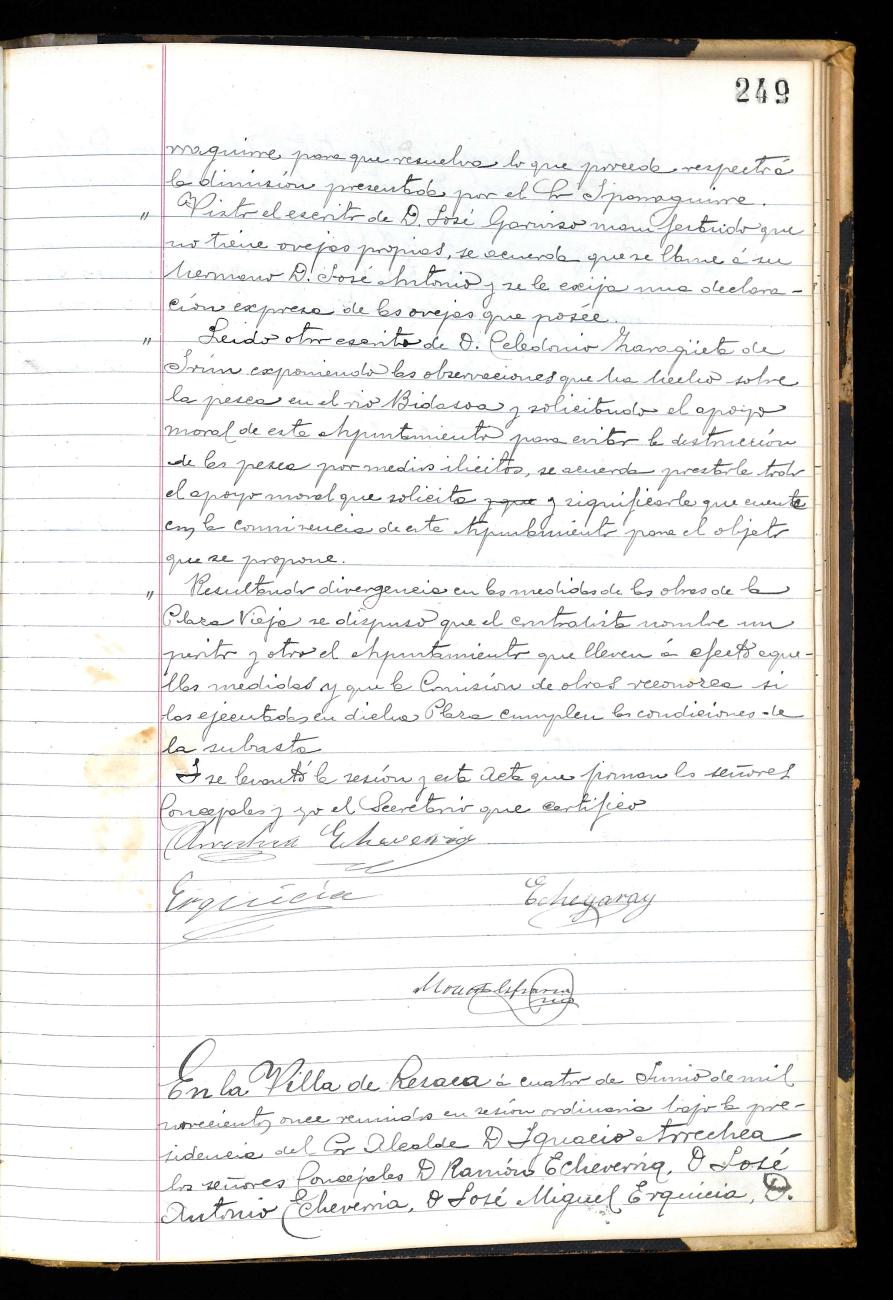 249
rraguirre para que resuelva lo que proceda respecto á
la dimisión presentada por el Sr Iparraguirre.
" Visto el escrito de D. José manifestando que
no tiene ovejas propias, se acuerda que se llame á su
hermano D. José Antonio y se le exija una declara-
ción expresa de las ovejas que posée.
" Leido otro escrito de D. Celedonio Zaragüeta de
Irún exponiendo las observaciones que ha hecho sobre
la pesca en el rio Bidasoa y solicitando el apoyo
moral de este Ayuntamiento para evitar la destrucción
de las pesca por medios ilicitos, se acuerda prestarle todo
el apoyo moral que solicita y que y significarle que cuente
con la connivencia de este Ayuntamiento para el objeto
que se propone.
" Resultando divergencia en las medidas de las obras de la
Plaza Vieja se dispuso que el contratista nombre un
perito y otro el Ayuntamiento que lleven á efecto aque-
llas medidas y que la Comisión de obras reconozca si
las ejecutadas en dicha Plaza cumplen las condiciones de
la subasta
Y se levantó la sesión y esta Acta que firman los señores
Concejales y yo el Secretario que certifico
Arrechea Echeverria
Erquicia Echegaray
En la Villa de Lesaca á cuatro de Junio de mil
novecientos once reunidos en sesión ordinaria bajo la pre-
sidencia del Sr Alcalde D Ignacio Arrechea
los señores Concejales D Ramón Echeverria, D José
Antonio Echeverria, D José Miguel Erquicia, D.